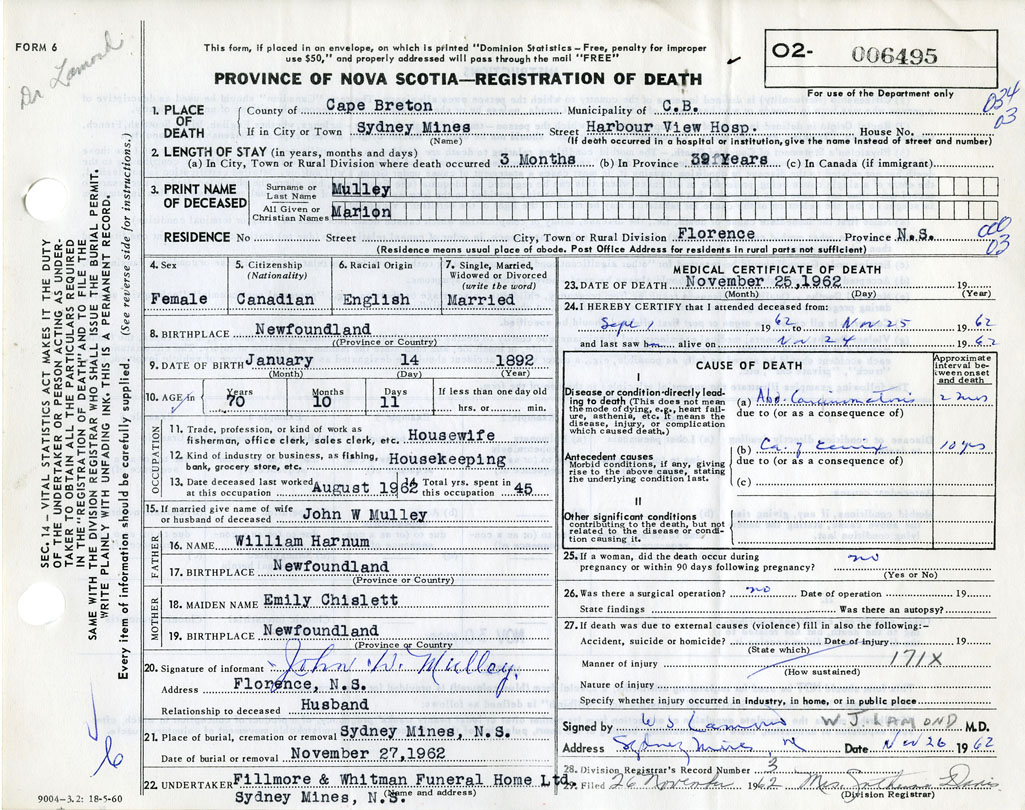 FORM 6
Dr Lamond
This form, if placed in an envelope, on which is printed "Dominion Statistics—Free, penalty for improper
use $50," and properly addressed will pass through the mail "FREE"
PROVINCE OF NOVA SCOTIA—REGISTRATION OF DEATH
02- 006495
For use of the Department only
034
03
1. PLACE OF DEATH
County of Cape Breton Municipality of C.B.
If in City or Town Sydney Mines Street Harbour View Hosp. House No.
(Name) (If death occurred in a hospital or institution, give name instead of street and number)
2. LENGTH OF STAY (in years, months and days)
(a) In City, Town or Rural Division where death occurred 3 Months (b) In Province 39 Years (c) In Canada (if immigrant)
3. PRINT NAME OF DECEASED
Surname or Last Name Mulley
All Given or Christian Names Marion
RESIDENCE No Street City, Town or Rural Division Florence Province N.S.
(Residence means usual place of abode. Post Office Address for residents in rural parts not sufficient)
03
SEC. 14 – VITAL STATISTICS ACT MAKES IT THE DUTY
OF THE UNDERTAKER OR PERSON ACTING AS UNDER-
TAKER TO OBTAIN ALL THE PARTICULARS REQUIRED
IN THE "REGISTRATION OF DEATH" AND TO FILE THE
SAME WITH THE DIVISION REGISTRAR WHO SHALL ISSUE THE BURIAL PERMIT.
WRITE PLAINLY WITH UNFADING INK. THIS IS A PERMANENT RECORD.
Every item of information should be carefully supplied. (See reverse side for instructions.)
4. Sex
Female
5. Citizenship
(Nationality)
Canadian
6. Racial Origin
English
7. Single, Married,
Widowed or Divorced
(write the word)
Married
8. BIRTHPLACE Newfoundland
(Province or Country)
9. DATE OF BIRTH January 14 1892
(Month) (Day) (Year)
10. AGE in Years Months Days If less than one day old
70 10 11 hrs. or min.
OCCUPATION
11. Trade, profession, or kind of work as
fisherman, office clerk, sales clerk, etc. Housewife
12. Kind of industry or business, as fishing,
bank, grocery store, etc. Housekeeping
13. Date deceased last worked at this occupation August 1962
14 Total yrs. spent in this occupation 45
15. If married give name of wife
or husband of deceased John W Mulley
FATHER
16. NAME William Harnum
17. BIRTHPLACE Newfoundland
(Province or Country)
MOTHER
18. MAIDEN NAME Emily Chislett
19. BIRTHPLACE Newfoundland
(Province or Country)
20. Signature of informant John W. Mulley.
Address Florence, N.S.
Relationship to deceased Husband
21. Place of burial, cremation or removal Sydney Mines, N.S.
Date of burial or removal November 27,1962
22. UNDERTAKER Fillmore & Whitman Funeral Home Ltd.
(Name and address)
Sydney Mines, N.S.
9004–3.2: 18-5-60
MEDICAL CERTIFICATE OF DEATH
23. DATE OF DEATH November 25,1962 19
(Month) (Day) (Year)
24. I HEREBY CERTIFY that I attended deceased from:
Sept 1 1962 to Nov 25 1962
and last saw h alive on Nov 24 1962
CAUSE OF DEATH
Approximate
interval be-
tween onset
and death
I
Disease or condition directly lead-
ing to death (This does not mean
the mode of dying, e.g., heart fail-
ure, asthenia, etc. It means the
disease, injury, or complication
which caused death.)
(a) Abd. Carcinomatosis 2 mos
due to (or as a consequence of)
Antecedent causes
Morbid conditions, if any, giving
rise to the above cause, stating
the underlying condition last.
(b) Ca. of cervix 10 yrs
due to (or as a consequence of)
(c)
II
Other significant conditions
contributing to the death, but not
related to the disease or condi-
tion causing it.
25. If a woman, did the death occur during
pregnancy or within 90 days following pregnancy? no
(Yes or No)
26. Was there a surgical operation? no Date of operation 19
State findings Was there an autopsy?
27. If death was due to external causes (violence) fill in also the following:-
Accident, suicide or homicide? Date of injury 19
(State which)
Manner of injury 171X
(How sustained)
Nature of injury
Specify whether injury occurred in industry, in home, or in public place
Signed by W J Lamond W. J. LAMOND M.D.
Address Sydney Mines, Date Nov 26 1962
28. Division Registrar's Record Number 3
29. Filed 26 November 1962 Mrs.
(Division Registrar)